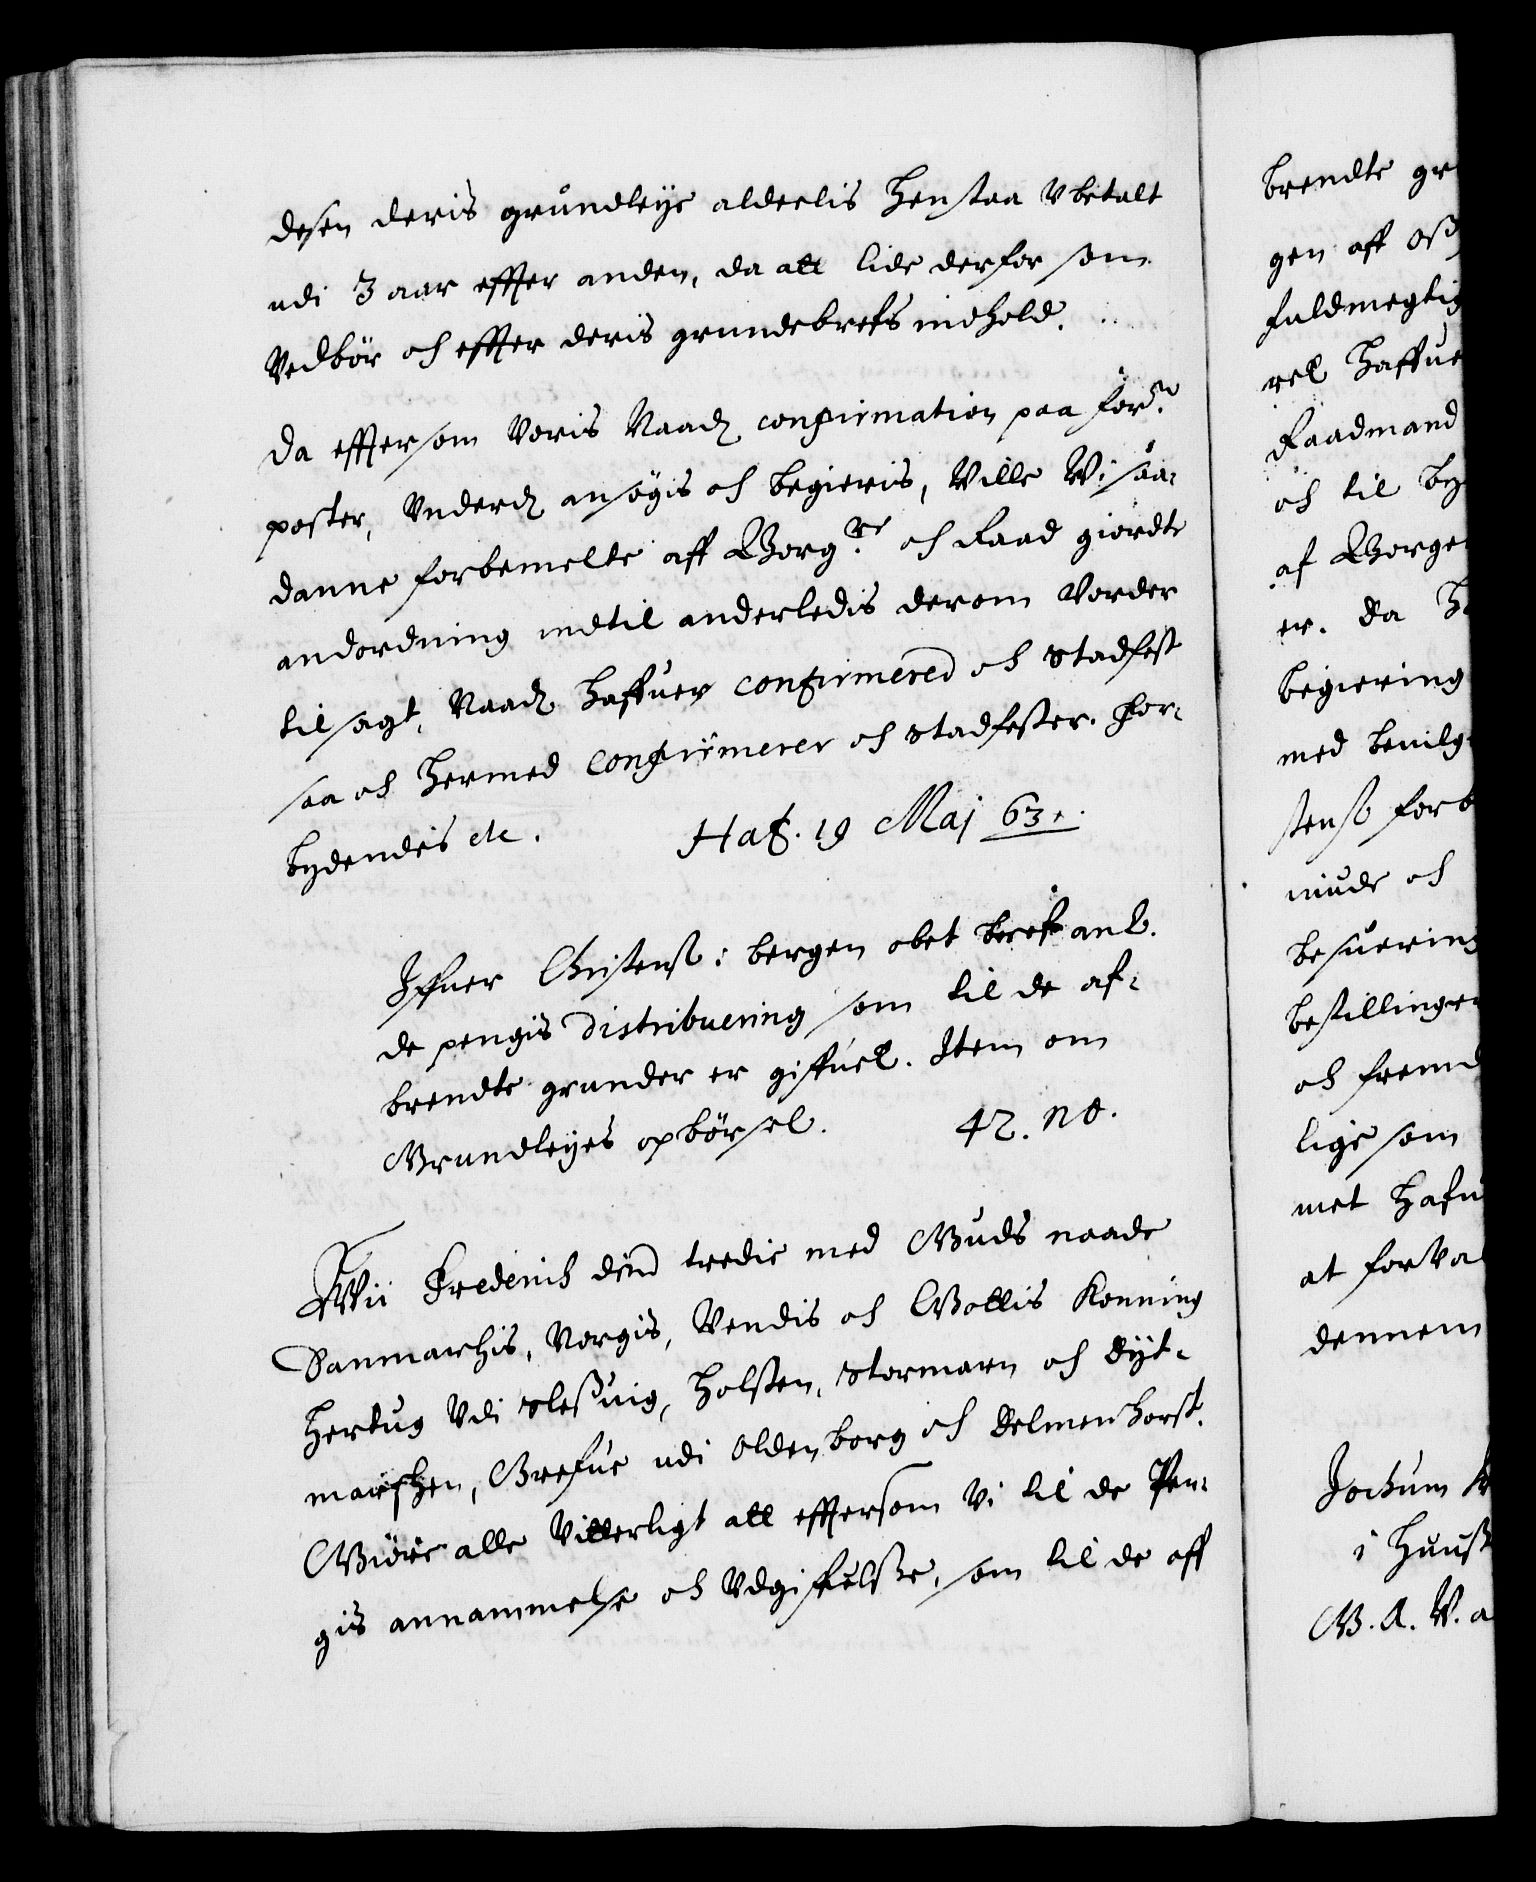 desen deris grundleije aldelis henstaa Vbetalt
udi 3 aar effter anden, da att lide derfor som
Vedbör och effter deris grundebrefs indhold.
Da effter som Voris Naad: confirmation paa for:ne
poster, Underd: ansögis och begieris, Ville Wi saa-
danne forbemelte aff Borg:re och Raad giordte
andordning indtil anderledis derom Vorder
tilsagt, Naad: haffuer confirmered och stadfest
saa och hermed confirmerer och stadfester. For-
bydendis etc. Haf. 19 Maj 63.
Iffuer Christens: i bergen obet breff anl.
de pengis distribuering som til de af-
brendte grunder er giffuet. Item om
Grundleijes opbörsel. 42. no.
Wii Frederich dend tredie med Guds naade
Danmarchis, Norgis, Vendis och Gottis Konning
Hertug Udi Slesuig, Holsten, Stormarn och Dyt-
marschen, Grefue udi Oldenborg och Delmenhorst.
Giöre alle Vitterligt att efftersom Vi til de Pen-
gis annammelse och Udgiffuelsse, som til de aff
brendte gr
gen aff oß
fuldmegtig
ret haffue
Raadmand
och til by
af Borge
er. Da h
begiering
med beuilg
stens forb
miude och
besuering
bestillinge
och fremd
lige som
met hafu
at forva
dennem
Jochum
i Huuß
G. A. V. a